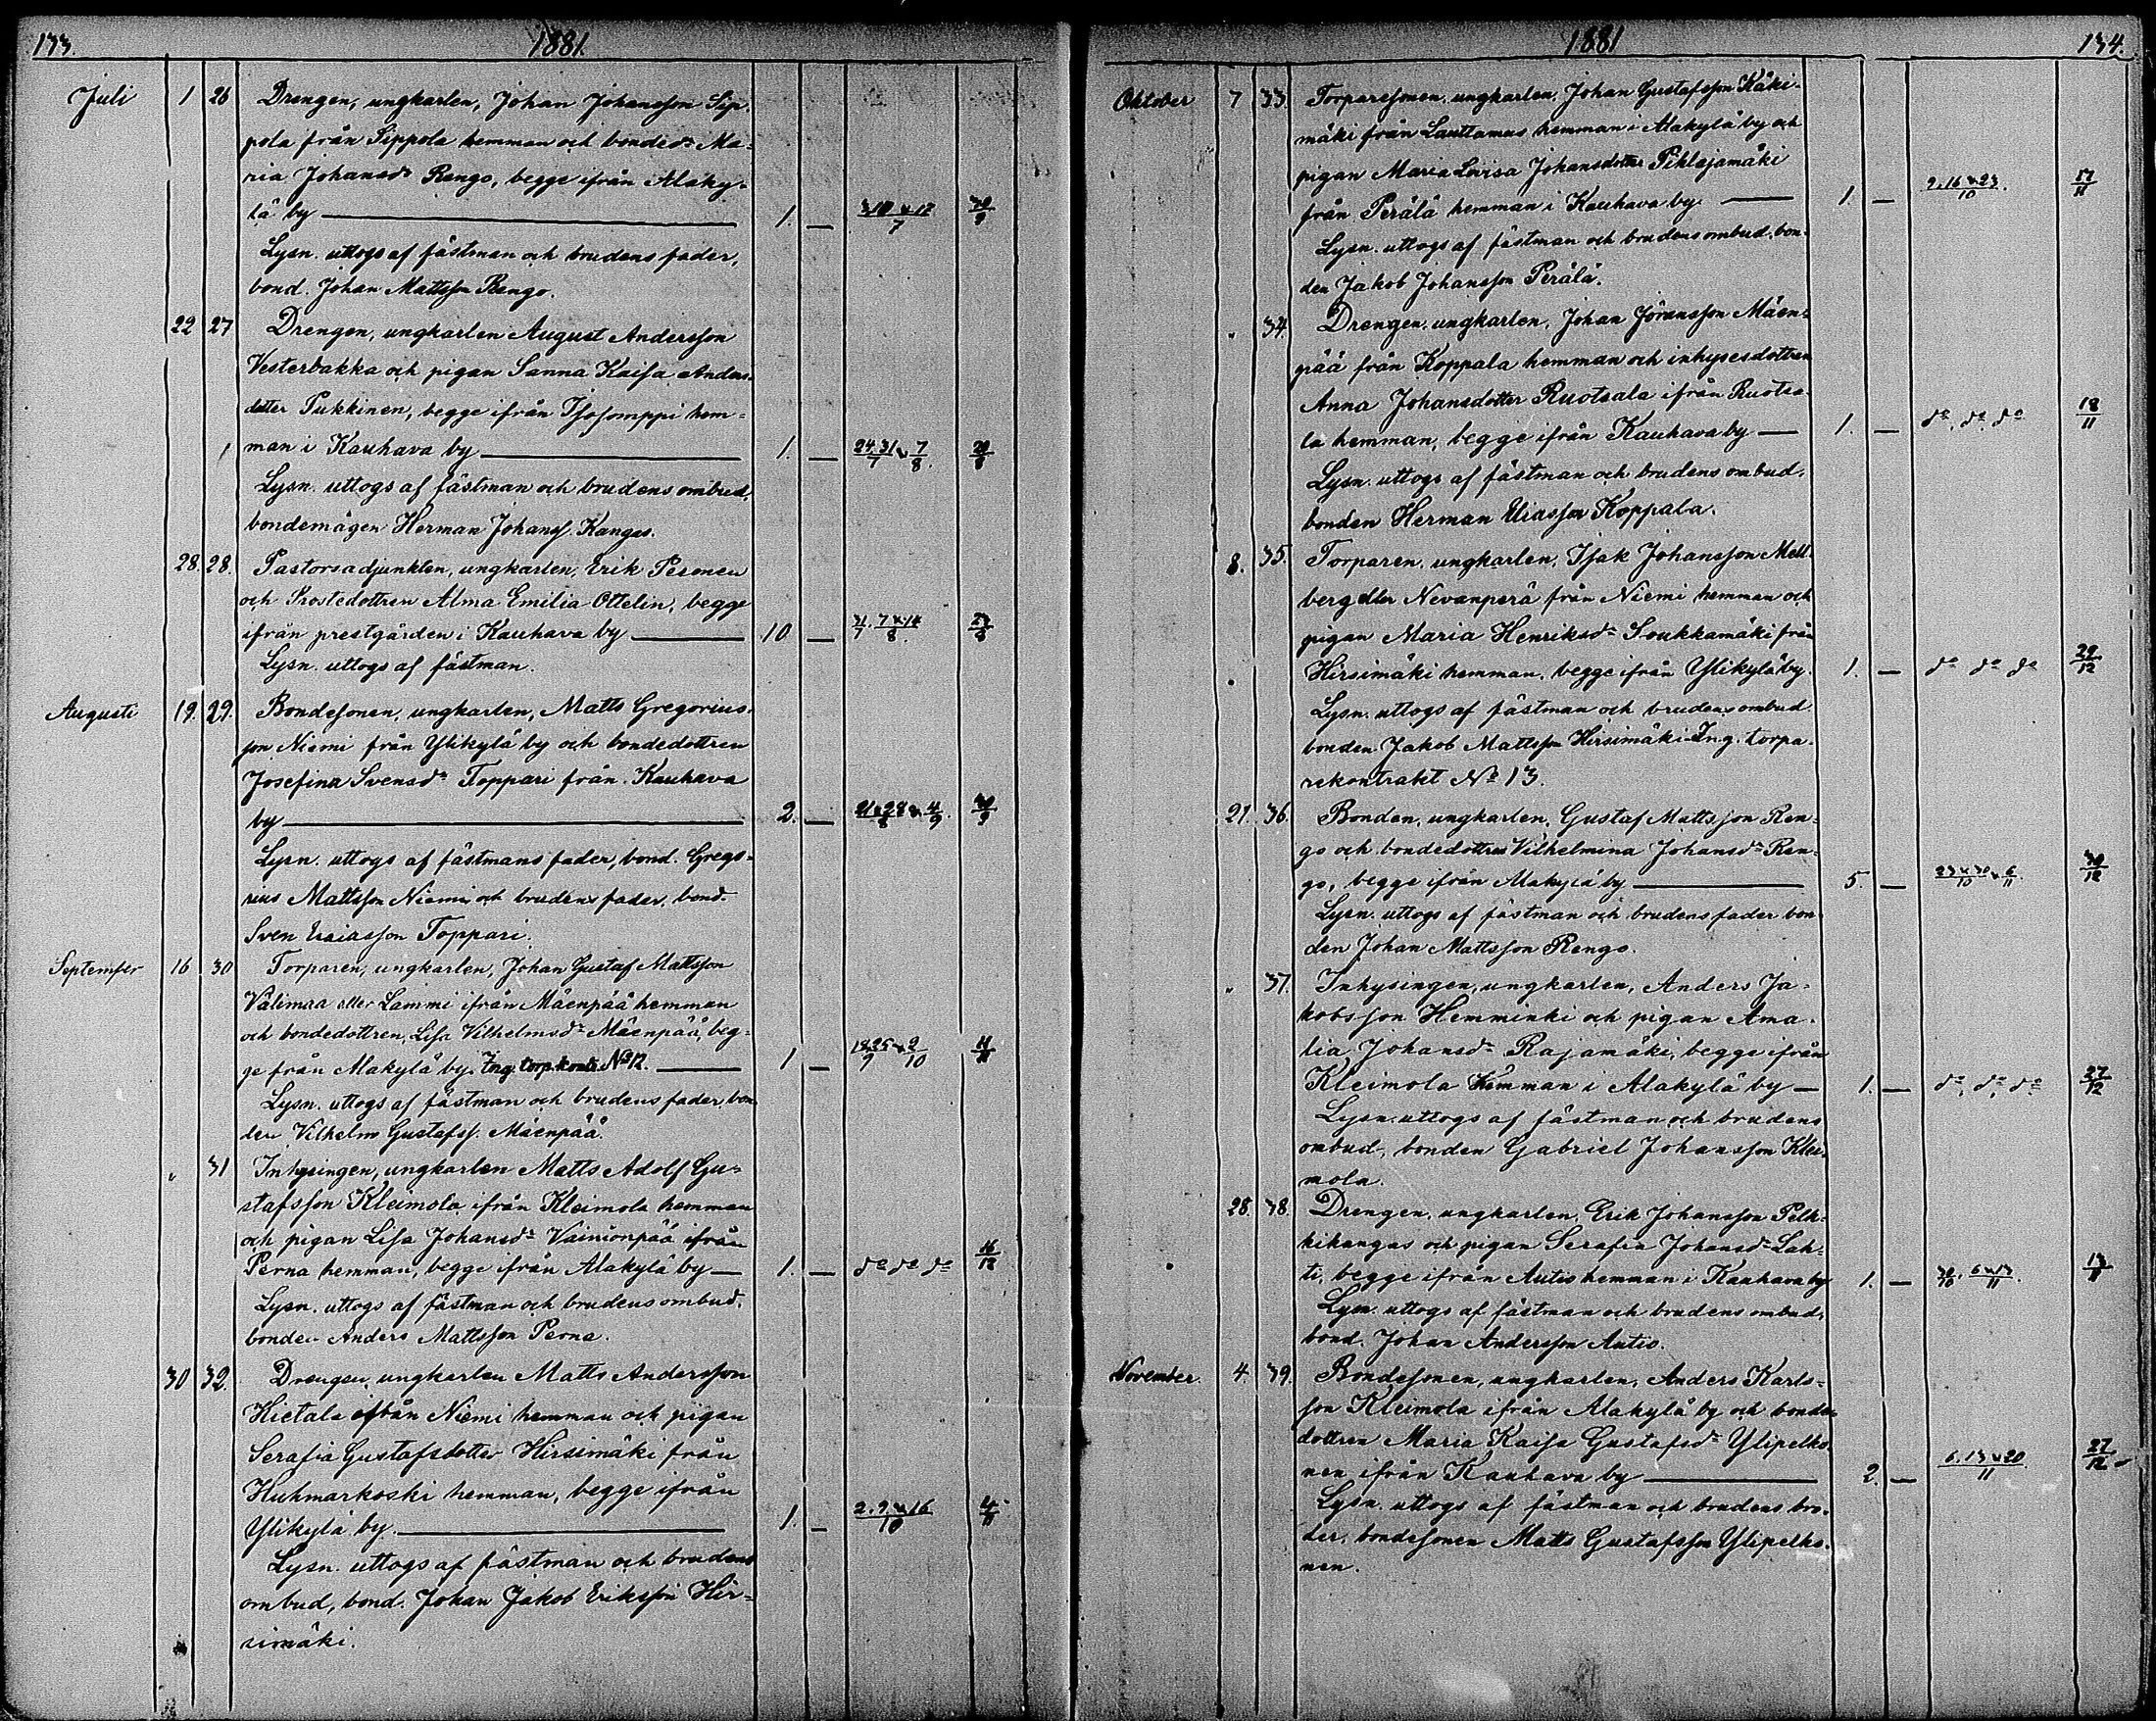 133. 1881.
Juli 1 26 Drengen, ungkarlen, Johan Johansson Sip-
pola från Sippola hemman och bonded:r Ma-
ria Johansd:r Rengo, begge ifrån Alaky-
lä by 1. — 3.10 & 17/7 30/9
Lysn. uttogs af fästman och brudens fader,
bond. Johan Mattsson Rengo.
22 27 Drengen, ungkarlen August Andersson
Vesterbakka och pigan Sanna Kaisa Anders-
dotter Pukkinen, begge ifrån Isosomppi hem-
man i Kauhava by 1. — 24.31/7 & 7/8. 20/8
Lysn. uttogs af fästman och brudens ombud,
bondemågen Herman Johanss. Kangas.
28. 28. Pastorsadjunkten, ungkarlen, Erik Pesonen
och Prostedottren Alma Emilia Ottelin, begge
ifrån prestgården i Kauhava by 10 — 31/7. 7 & 14/8. 23/8
Lysn. uttogs af fästman.
Augusti 19. 29. Bondesonen, ungkarlen, Matts Gregorius-
son Niemi från Ylikylä by och bondedottren
Josefina Svensd:r Toppari från Kauhava
by 2. — 21 & 28/8 & 4/9. 30/9
Lysn. uttogs af fästmans fader, bond. Grego-
rius Mattsson Niemi och brudens fader, bond.
Sven Esaiasson Toppari.
September 16 30 Torparen, ungkarlen, Johan Gustaf Mattsson
Välimaa eller Lammi ifrån Mäenpää hemman
och bondedottren Lisa Vilhelmsd:r Mäenpää, beg-
ge från Alakylä by. Ing. torp. kontr. No 12. 1 — 18.25/9 & 2/10 11/11
Lysn. uttogs af fästman och brudens fader, bon-
den Vilhelm Gustafss. Mäenpää.
" 31 Inhysingen, ungkarlen Matts Adolf Gu-
stafsson Kleimola ifrån Kleimola hemman
och pigan Lisa Johansd:r Vainionpää ifrån
Perna hemman, begge ifrån Alakylä by 1. — d:o d:o d:o 16/12
Lysn. uttogs af fästman och brudens ombud,
bonden Anders Mattsson Perna.
30 32. Drengen, ungkarlen Matts Andersson
Hietala ifrån Niemi hemman och pigan
Serafia Gustafsdotter Hirsimäki från
Huhmarkoski hemman, begge ifrån
Ylikylä by. 1. — 2. 9 & 16/10 4/11
Lysn. uttogs af fästman och brudens
ombud, bond. Johan Jakob Eriksson Hir-
simäki.
1881 134.
Oktober 7 33. Torparesonen, ungkarlen, Johan Gustafsson Käki-
mäki från Lauttamus hemman i Alakylä by och
pigan Maria Lovisa Johansdotter Pihlajamäki
från Perälä hemman i Kauhava by 1. — 9.16 & 23/10. 17/11
Lysn. uttogs af fästman och brudens ombud, bon-
den Jakob Johansson Perälä.
" 34. Drengen, ungkarlen, Johan Göransson Mäen-
pää från Koppala hemman och inhysesdottren
Anna Johansdotter Ruotsala ifrån Ruotsa-
la hemman, begge ifrån Kauhava by 1. — d:o, d:o, d:o 18/11
Lysn. uttogs af fästman och brudens ombud,
bonden Herman Eliasson Koppala.
8. 35. Torparen, ungkarlen, Isak Johansson Mell-
berg eller Nevanperä från Niemi hemman och
pigan Maria Henriksd:r Soukkamäki från
Hirsimäki hemman, begge ifrån Ylikylä by. 1. — d:o d:o d:o 29/12
Lysn. uttogs af fästman och brudens ombud
bonden Jakob Mattsson Hirsimäki Ing. torpa-
rekontrakt No 13.
21. 36. Bonden, ungkarlen, Gustaf Mattsson Ren-
go och bondedottren Vilhelmina Johansd:r Ren-
go, begge ifrån Alakylä by 5. — 23 & 30/10 & 6/11. 30/12
Lysn. uttogs af fästman och brudens fader bon-
den Johan Mattsson Rengo.
" 37. Inhysingen, ungkarlen, Anders Ja-
kobsson Hemminki och pigan Ama-
lia Johansd:r Rajamäki, begge ifrån
Kleimola hemman i Alakylä by 1. — d:o, d:o, d:o 27/12
Lysn. uttogs af fästman och brudens
ombud, bonden Gabriel Johansson Klei-
mola.
28. 38. Drengen, ungkarlen, Erik Johansson Pelk-
kikangas och pigan Serafia Johansd:r Lah-
ti, begge ifrån Autio hemman i Kauhava by 1. — 30/10. 6 & 13/11. 13/11
Lysn. uttogs af fästman och brudens ombud,
bond. Johan Andersson Autio.
November. 4. 39. Bondesonen, ungkarlen, Anders Karls-
son Kleimola ifrån Alakylä by och bonde-
dottren Maria Kaisa Gustafsd:r Ylipelko-
nen ifrån Kauhava by 2. — 6. 13 & 20/11 27/12
Lysn. uttogs af fästman och brudens bro-
der, bondesonen Matts Gustafsson Ylipelko-
nen.